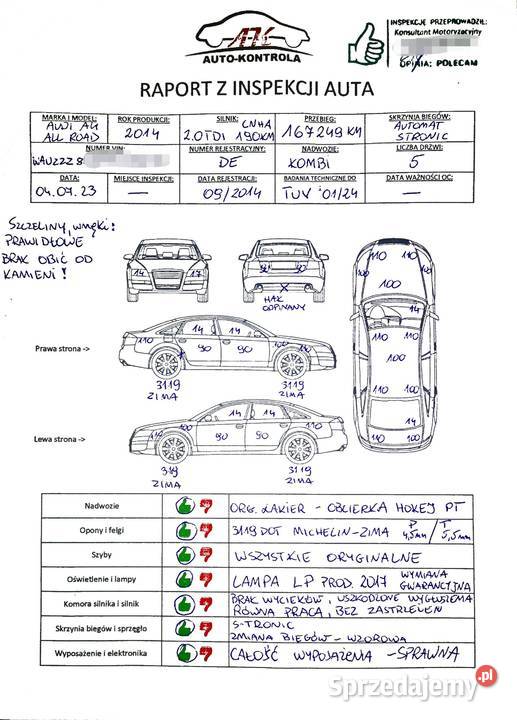 AYK
AUTO-KONTROLA
INSPEKCJĘ PRZEPROWADZIŁ:
Konsultant Motoryzacyjny
OPINIA: POLECAM
RAPORT Z INSPEKCJI AUTA
MARKA I MODEL: ROK PRODUKCJI: SILNIK: CNHA PRZEBIEG: SKRZYNIA BIEGÓW:
AUDI A6 ALL ROAD 2014 2.0TDI 190KM 167249 KM AUTOMAT STRONIC
NUMER VIN: NUMER REJESTRACYJNY: NADWOZIE: LICZBA DRZWI:
WAUZZZ DE KOMBI 5
DATA: MIEJSCE INSPEKCJI: DATA REJESTRACJI: BADANIA TECHNICZNE DO DATA WAŻNOŚCI OC:
04.07.23 — 09/2014 TUV '01/24 —
SZCZELINY, WNĘKI:
PRAWIDŁOWE
BRAK OBIĆ OD
KAMIENI!
14 17
90 90
HAK
ODPINANY
110 110
100
100
110 110
14
110 100 110
Prawa strona ->
14 14
110 90 90 100
3119 3119
ZIMA ZIMA
Lewa strona ->
14
110 100 90 90 100
319 3119
ZIMA ZIMA
Nadwozie ORG. LAKIER - OBCIERKA HOKEJ PT
Opony i felgi 3119 DOT MICHELIN-ZIMA P 4,5mm / T 5,5mm
Szyby WSZYSTKIE ORYGINALNE
Oświetlenie i lampy LAMPA LP PROD. 2017 WYMIANA GWARANCYJNA
Komora silnika i silnik BRAK WYCIEKÓW, USZKODZONE WYGŁUSZENIA
RÓWNA PRACA, BEZ ZASTRZEŻEŃ
Skrzynia biegów i sprzęgło S-TRONIC
ZMIANA BIEGÓW - WZOROWA
Wyposażenie i elektronika CAŁOŚĆ WYPOSAŻENIA - SPRAWNA
Sprzedajemy.pl